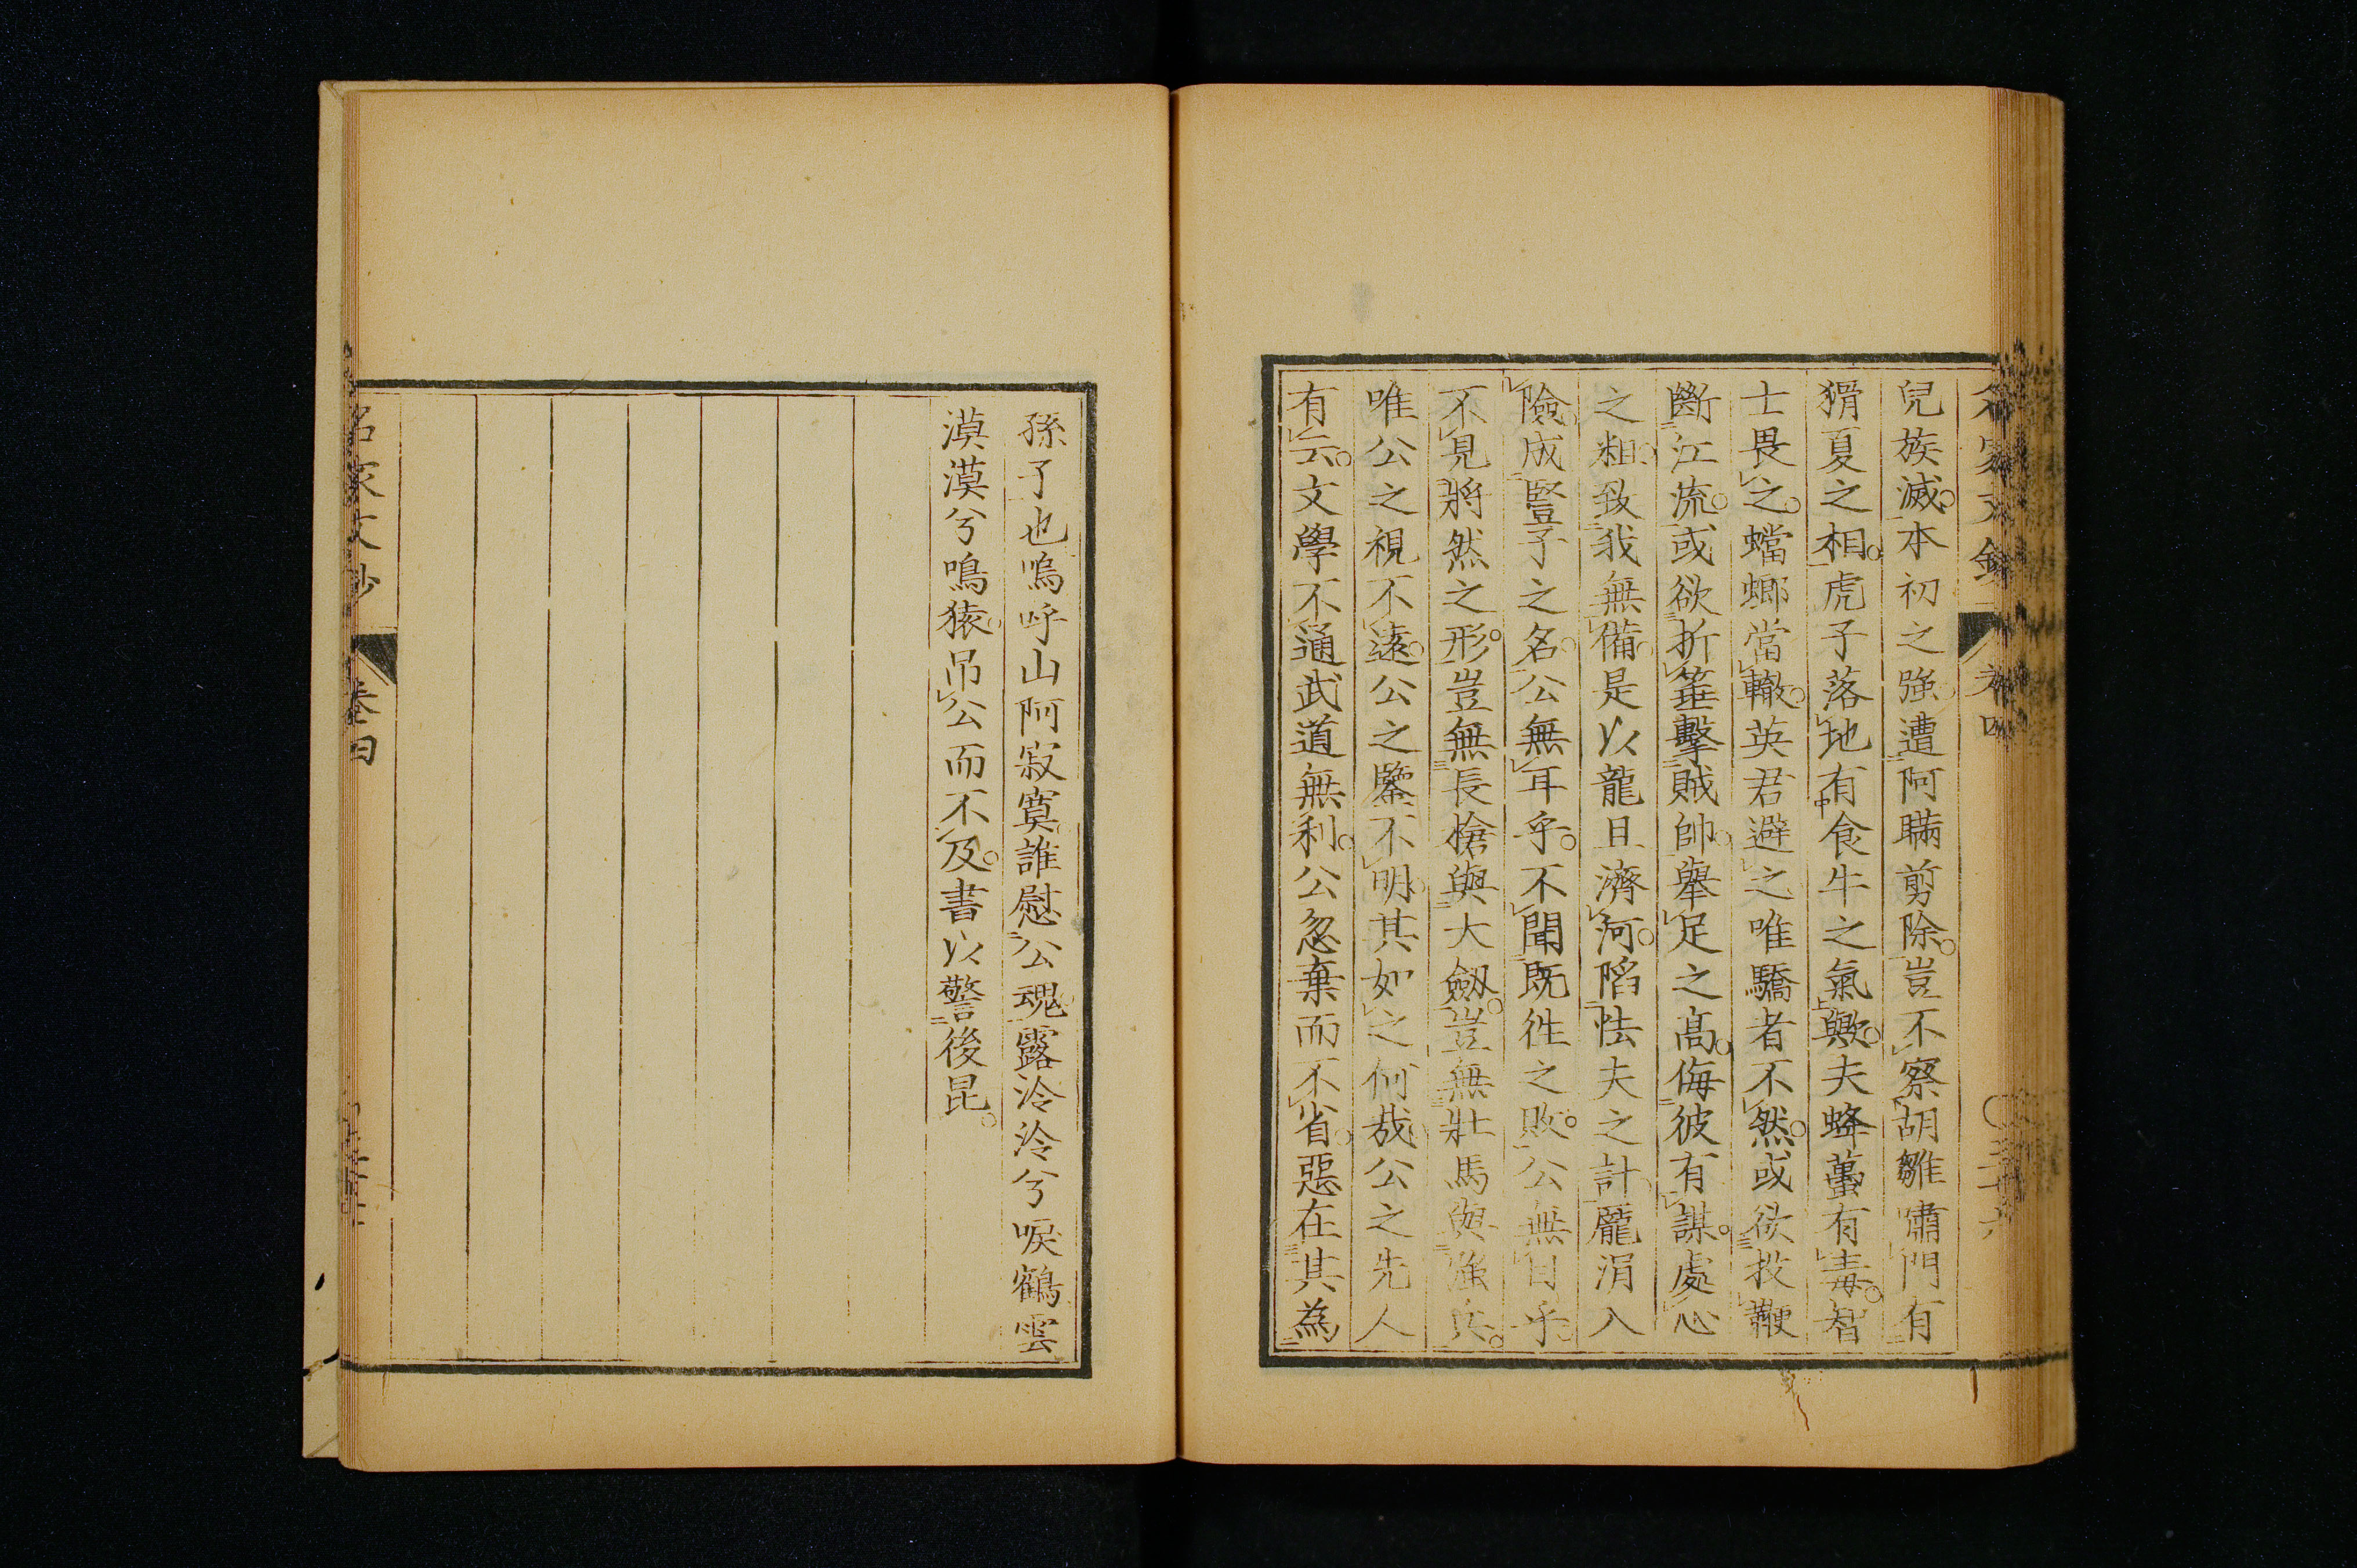 兒族滅本初之強遭阿瞞剪除豈不察胡雛嘯門有
猾夏之相虎子落地有食牛之氣歟夫蜂蠆有毒智
士畏之蟷螂當轍英君避之唯驕者不然或欲投鞭
斷江流或欲折箠擊賊帥舉足之高侮彼有謀處心
之粗致我無備是以龍且濟河陷怯夫之計龐涓入
險成豎子之名公無耳乎不聞既徃之敗公無目乎
不見將然之形豈無長槍與大劔豈無壯馬與強兵
唯公之視不遠公之鑒不明其如之何哉公之先人
有云文學不通武道無利公忽棄而不省惡在其為
孫子也嗚呼山阿寂寞誰慰公魂露泠泠兮唳鶴雲
漠漠兮鳴猿吊公而不及書以警後昆
名家文鈔
卷四